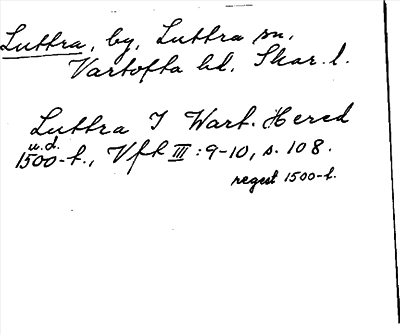 Luttra, by, Luttra sn,
Vartofta hd, Skar. l.
Luttra I Wart. Hered
u.d.
1500-t., Vft III: 9-10, s. 108.
regest 1500-t.